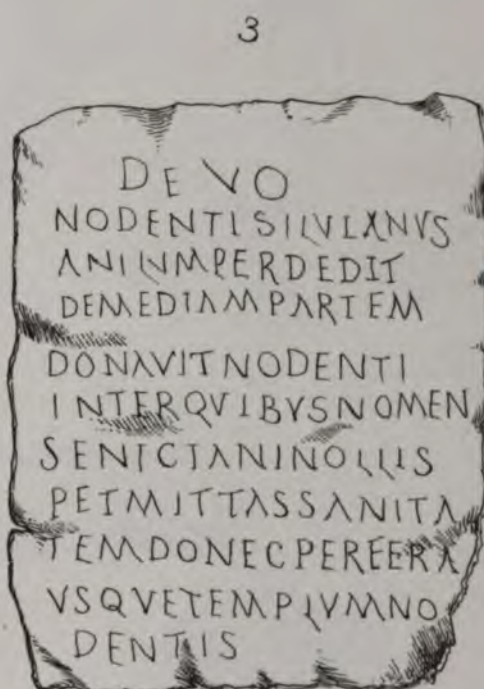 3
DEVO
NODENTISILVIANVS
ANILVMPERDEDIT
DEMEDIAMPARTEM
DONAVITNODENTI
INTERQVIBVSNOMEN
SENICIANINOLLIS
PETMITTASSANITA
TEMDONECPERFERA
VSQVETEMPLVMNO
DENTIS